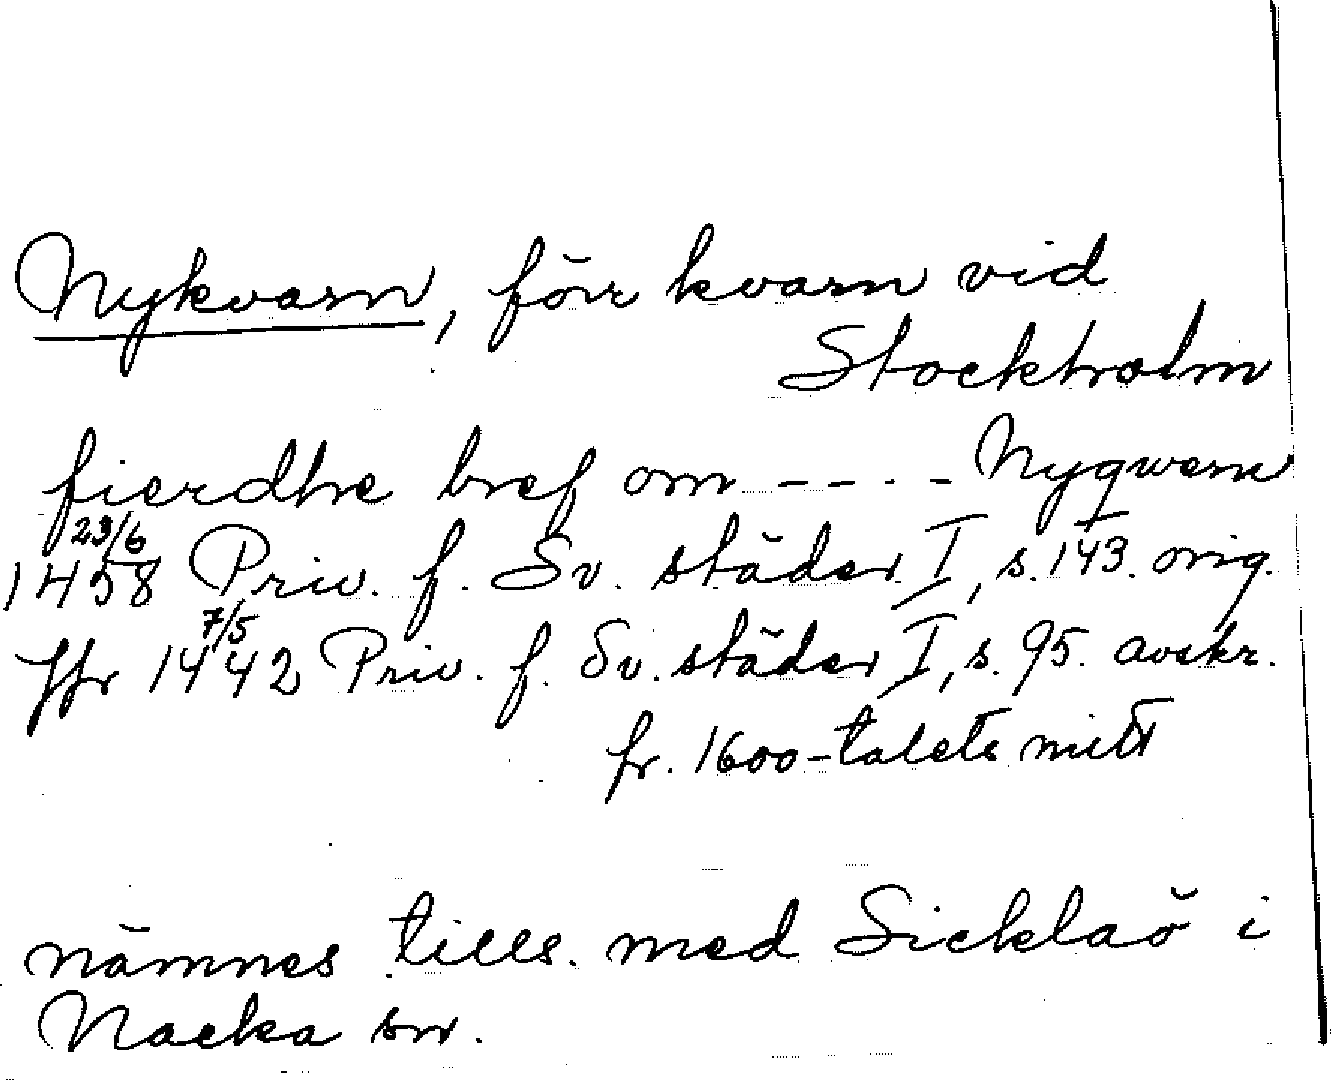 Nykvarn, förr kvarn vid
Stockholm
fierdhe bref om - - - - Nyqwern
23/6
1458 Priv. f. Sv. städer I, s. 143. orig.
7/5
Jfr 1442 Priv. f. Sv. städer I, s. 95. avskr.
fr. 1600-talets mitt
nämnes tills. med Sicklaö i
Nacka sn.